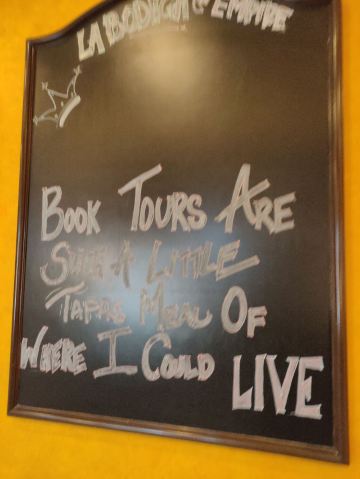 LA BODEGA & EMPIRE
BOOK TOURS ARE
SUCH A LITTLE
TAPAS MEAL OF
WHERE I COULD LIVE